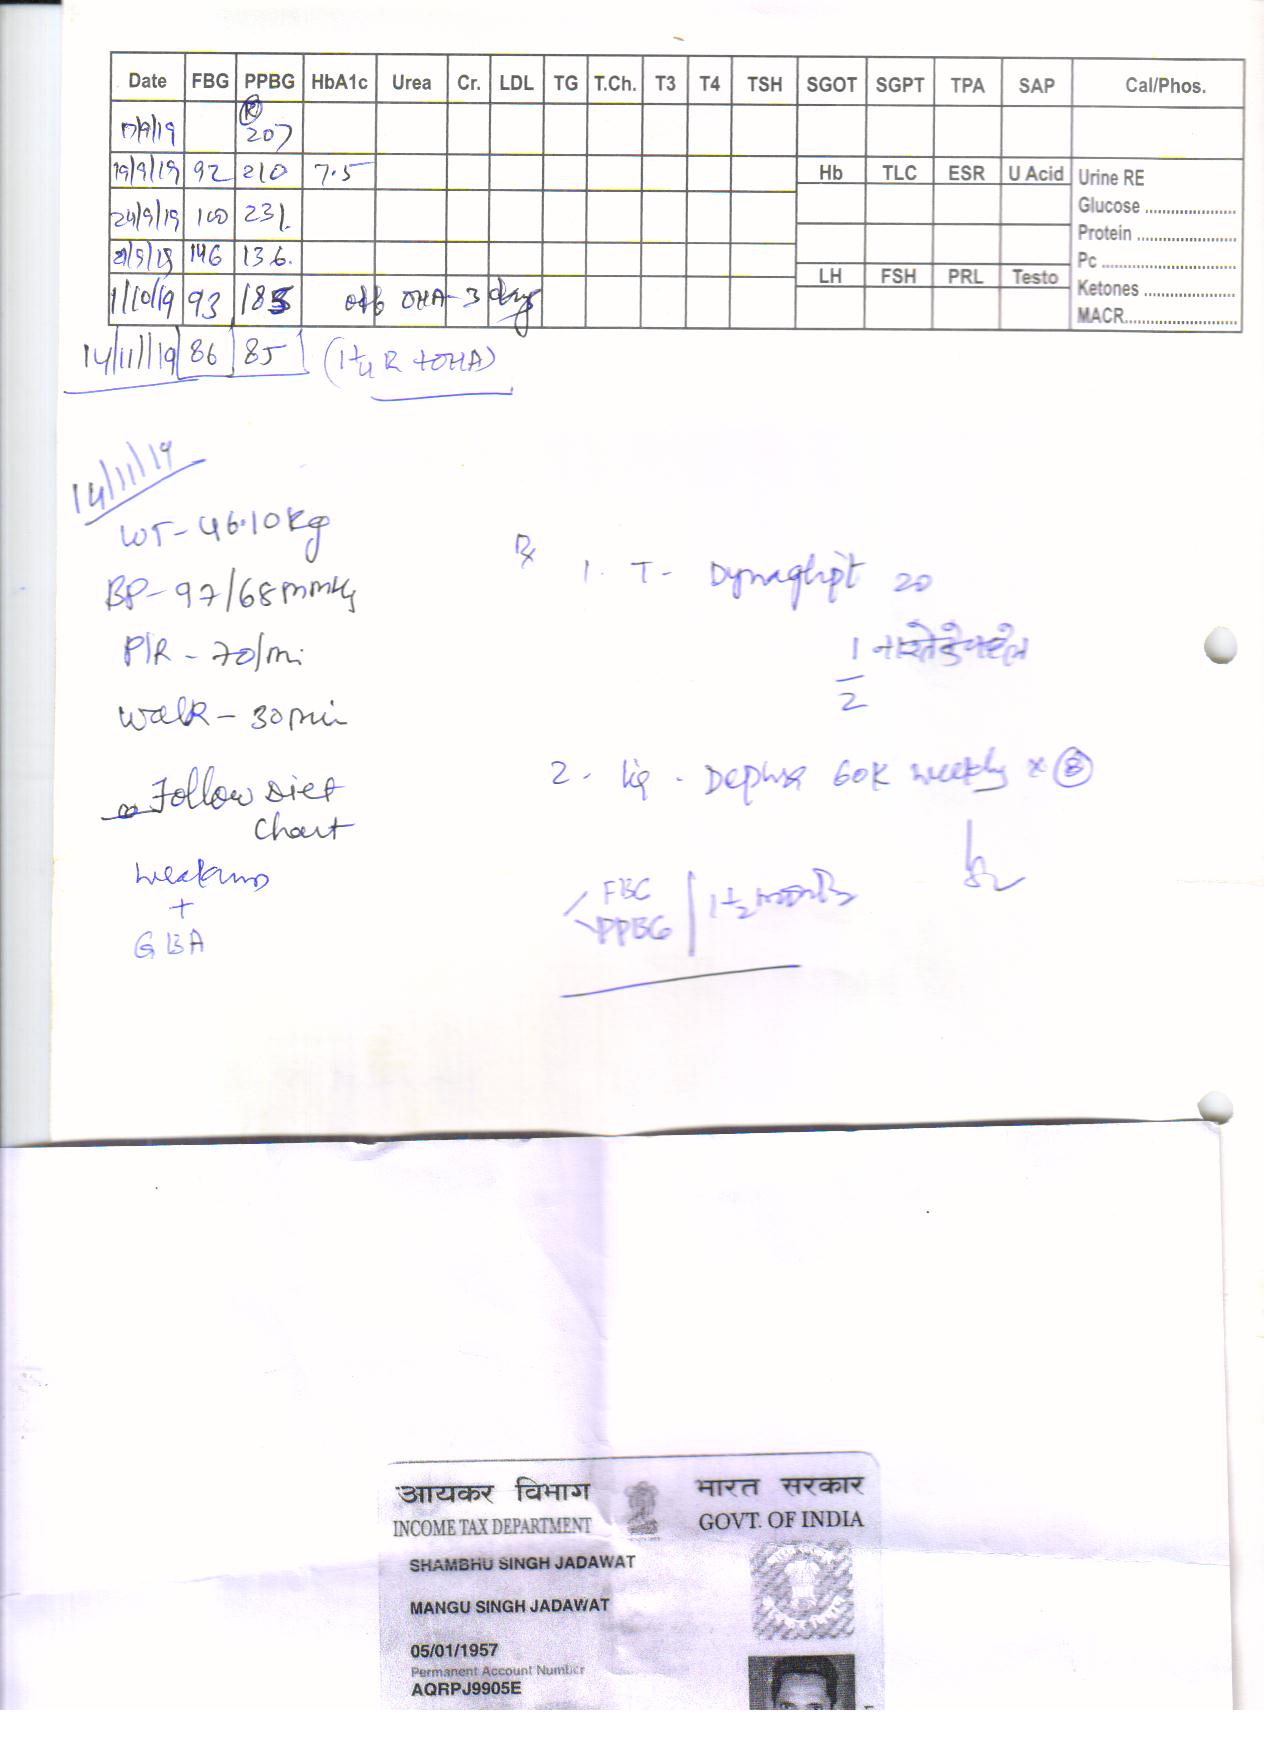 Date FBG PPBG HbA1c Urea Cr. LDL TG T.Ch. T3 T4 TSH SGOT SGPT TPA SAP Cal/Phos.
17/9/19 (R) 207
19/9/19 92 210 7.5
Hb TLC ESR U Acid Urine RE
Glucose ....................
24/9/19 100 231.
Protein ....................
146 136.
Pc ....................
LH FSH PRL Testo
Ketones ....................
1/10/19 93 185 off OHA-3 days
MACR....................
14/11/19 86 85 OHA)
14/11/19
WT-46.10kg
BP-97/68mmHg
P/R-70/mi
walk-30min
Follow Diet
Chart
weakness
+
GBA
Rx 1. T- Dynaglipt 20
1/2
2. 60K weekly × (8)
FBG
PPBG
आयकर विभाग भारत सरकार
INCOME TAX DEPARTMENT GOVT. OF INDIA
SHAMBHU SINGH JADAWAT
MANGU SINGH JADAWAT
05/01/1957
Permanent Account Number
AQRPJ9905E